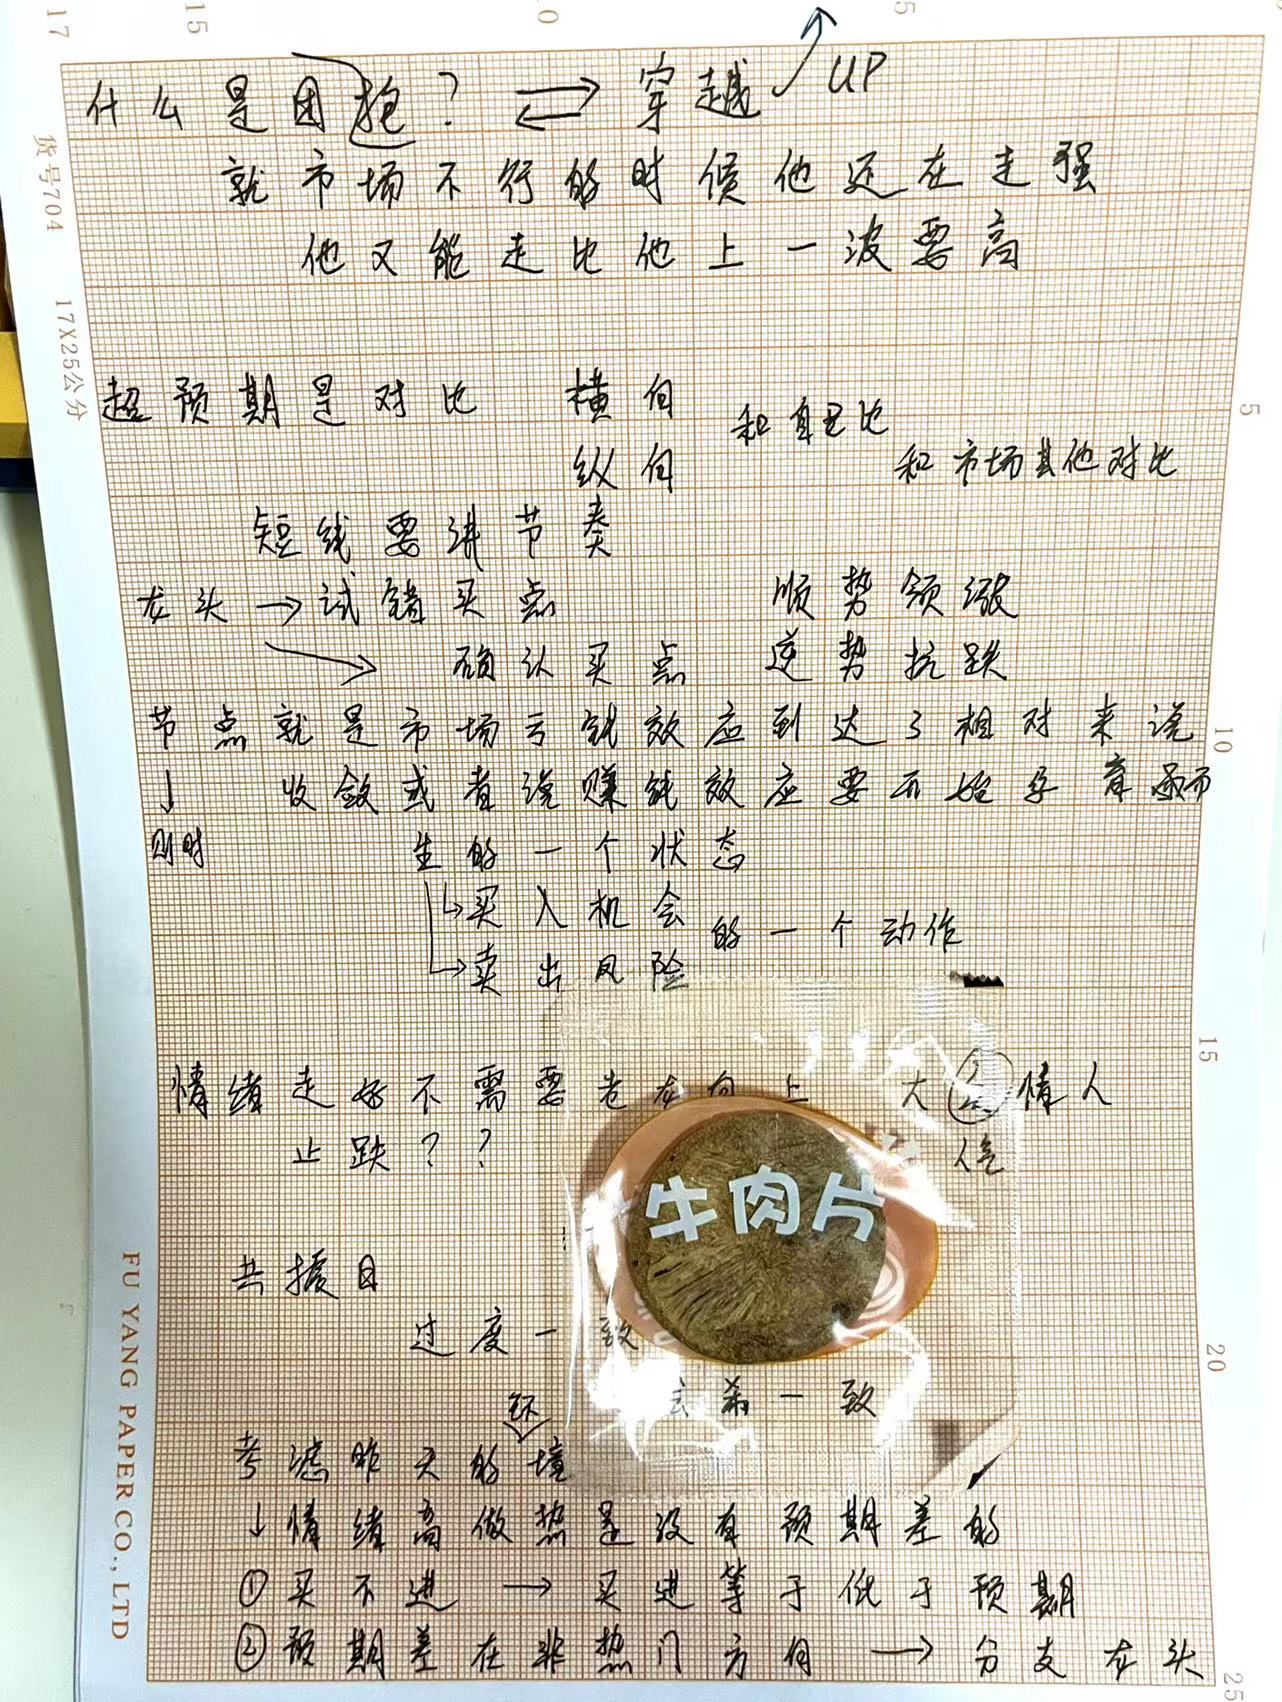 17 15 10 5
货号704 17X25公分
什么是团抱? ⇄ 穿越 ↗ UP
就市场不行的时候他还在走强
他又能走比他上一波要高
超预期是对比 横向 和自己比
纵向 和市场其他对比
短线要讲节奏
龙头 → 试错买点 顺势领涨
→ 确认买点 逆势抗跌
节点就是市场亏钱效应到达了相对来说
↓ 收敛或者说赚钱效应要开始孕育而
则时 生的一个状态
↳买入机会 的一个动作
↳卖出风险
情绪走好不需要老龙向上 大 情人
止跌?? 人气
牛肉片
共振日
过度一致
会杀一致
考虑昨天的环境
↓情绪高做热是没有预期差的
①买不进 → 买进等于低于预期
②预期差在非热门方向 → 分支龙头
5
10
15
20
25
FU YANG PAPER CO., LTD